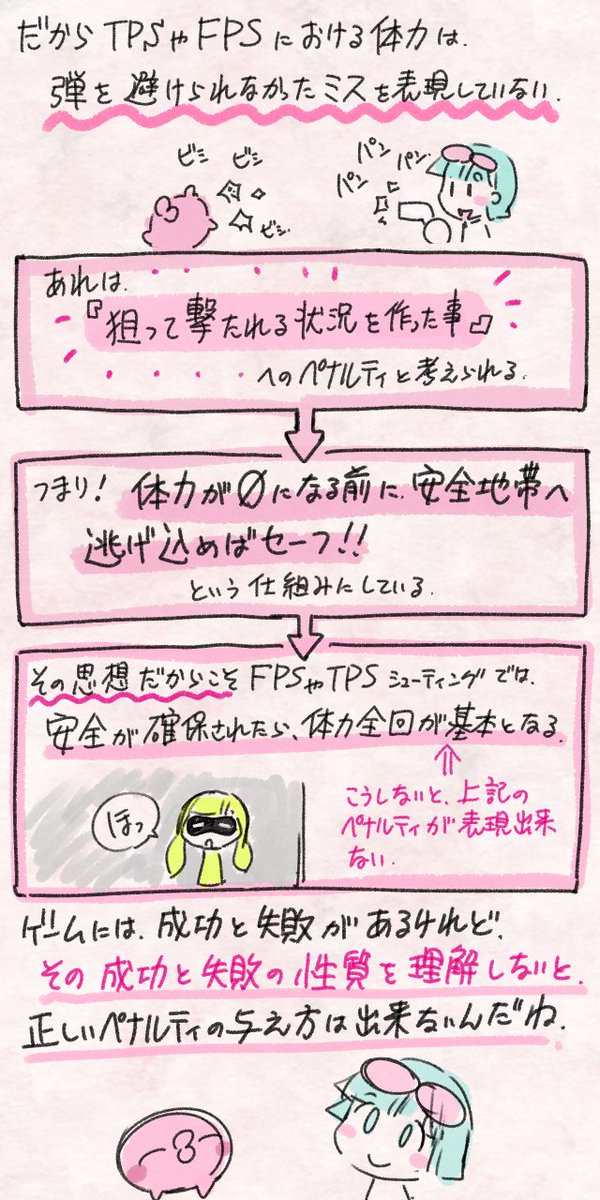 だからTPSやFPSにおける体力は、
弾を避けられなかったミスを表現していない.
ビシ ビシ
ビシ
パン パン
パン
あれは、
『狙って撃たれる状況を作った事』
へのペナルティと考えられる.
つまり! 体力が0になる前に、安全地帯へ
逃げ込めばセーフ!!
という仕組みにしている.
その思想だからこそFPSやTPSシューティングでは、
安全が確保されたら、体力全回が基本となる.
ほっ
こうしないと、上記の
ペナルティが表現出来
ない.
ゲームには、成功と失敗があるけれど、
その成功と失敗の性質を理解しないと、
正しいペナルティの与え方は出来ないんだね.